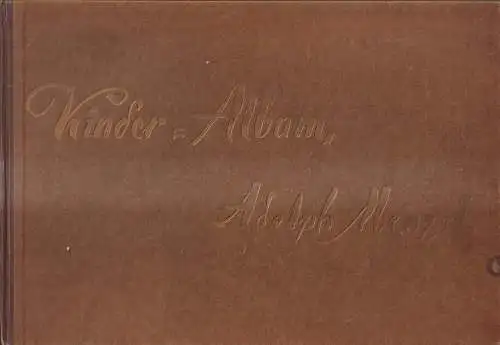 Kinder = Album,
Adolph Menzel